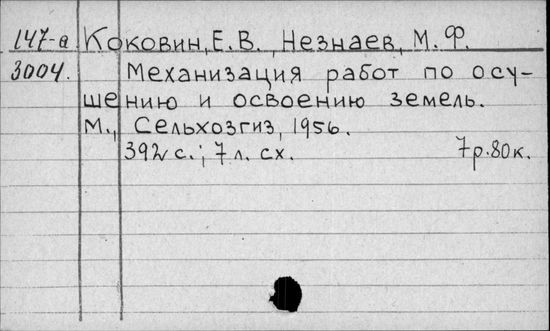 147-а Коковин, Е. В., Незнаев, М. Ф.
3004. Механизация работ по осу-
шению и освоению земель.
М., Сельхозгиз, 1956.
392 с.; 7 л. сх. 7 р. 80 к.